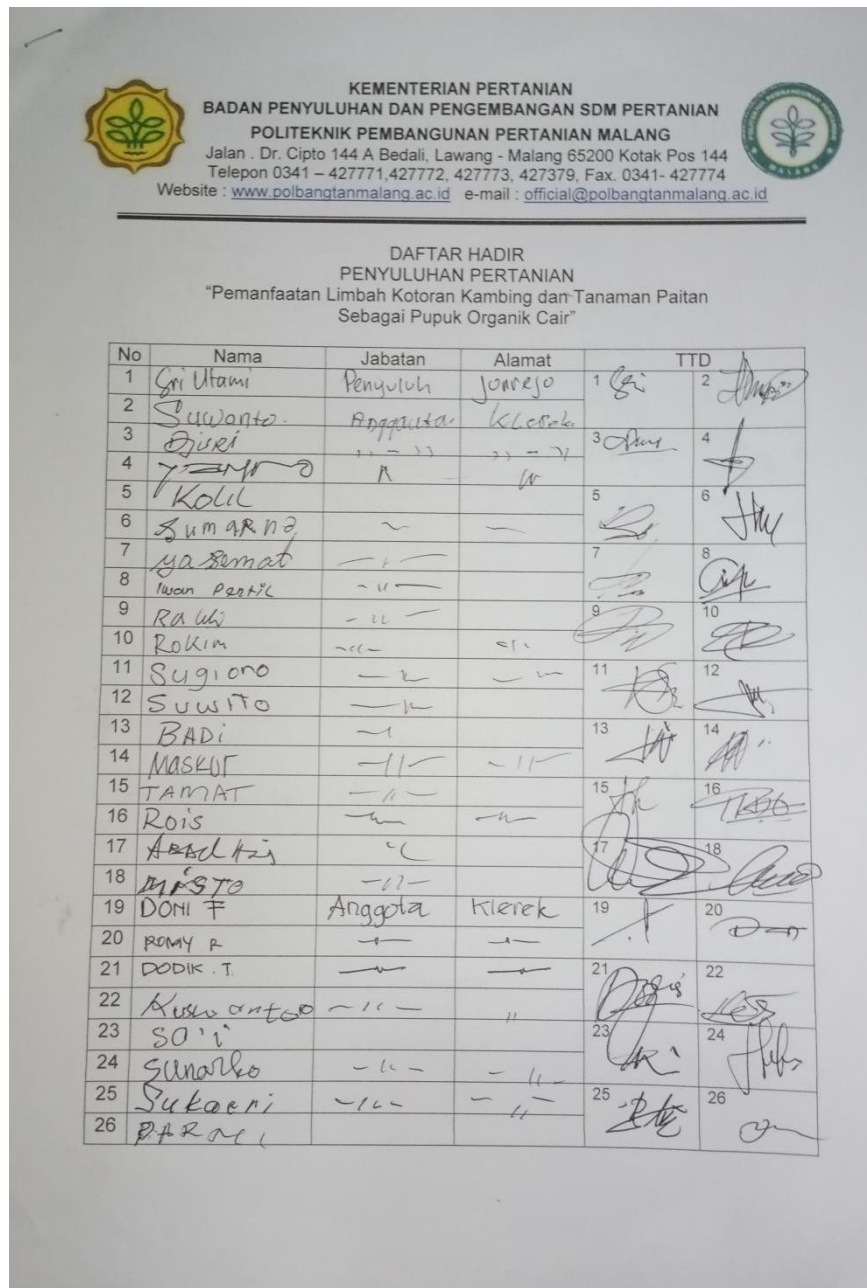 KEMENTERIAN PERTANIAN
BADAN PENYULUHAN DAN PENGEMBANGAN SDM PERTANIAN
POLITEKNIK PEMBANGUNAN PERTANIAN MALANG
Jalan . Dr. Cipto 144 A Bedali, Lawang - Malang 65200 Kotak Pos 144
Telepon 0341 – 427771,427772, 427773, 427379, Fax. 0341- 427774
Website : www.polbangtanmalang.ac.id e-mail : official@polbangtanmalang.ac.id
DAFTAR HADIR
PENYULUHAN PERTANIAN
"Pemanfaatan Limbah Kotoran Kambing dan Tanaman Paitan
Sebagai Pupuk Organik Cair"
No Nama Jabatan Alamat TTD
1 Sri Utami Penyuluh Junrejo 1 2
2 Suwanto. Klerek
3 Djuri 3 4
4
5 Kolil 5 6
6 Sumarna
7 yasemat 7 8
8 Iwan Pentil
9 9 10
10 Rokim
11 Sugiono 11 12
12 Suwito
13 BADi 13 14
14 Maskur
15 TAMAT 15 16
16 Rois
17 17 18
18 MISTO
19 DONI F Anggota Klerek 19 20
20 ROMY R
21 DODIK . T. 21 22
22 Kuswanto
23 SO'i 23 24
24 Sunarko
25 Sukaeri 25 26
26